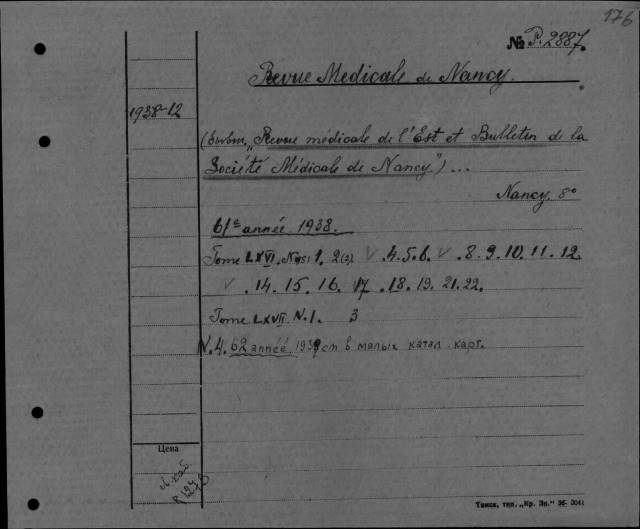 176
№ P. 2887.
Revue Medicale de Nancy.
1938-12
„Revue médicale de l'Est et Bulletin de la
Société Médicale de Nancy") ...
Nancy, 8°
61e année 1938.
Tome LXVI. 1. 2 V .4.5.6. V .8.9.10.11.12.
V .14.15.16. 17 .18.19.21.22.
Tome LXVII. N.1. 3
N.4. 62 année 1939 см в малых катал. карт.
Цена
Томск, тип. „Кр. Зн."